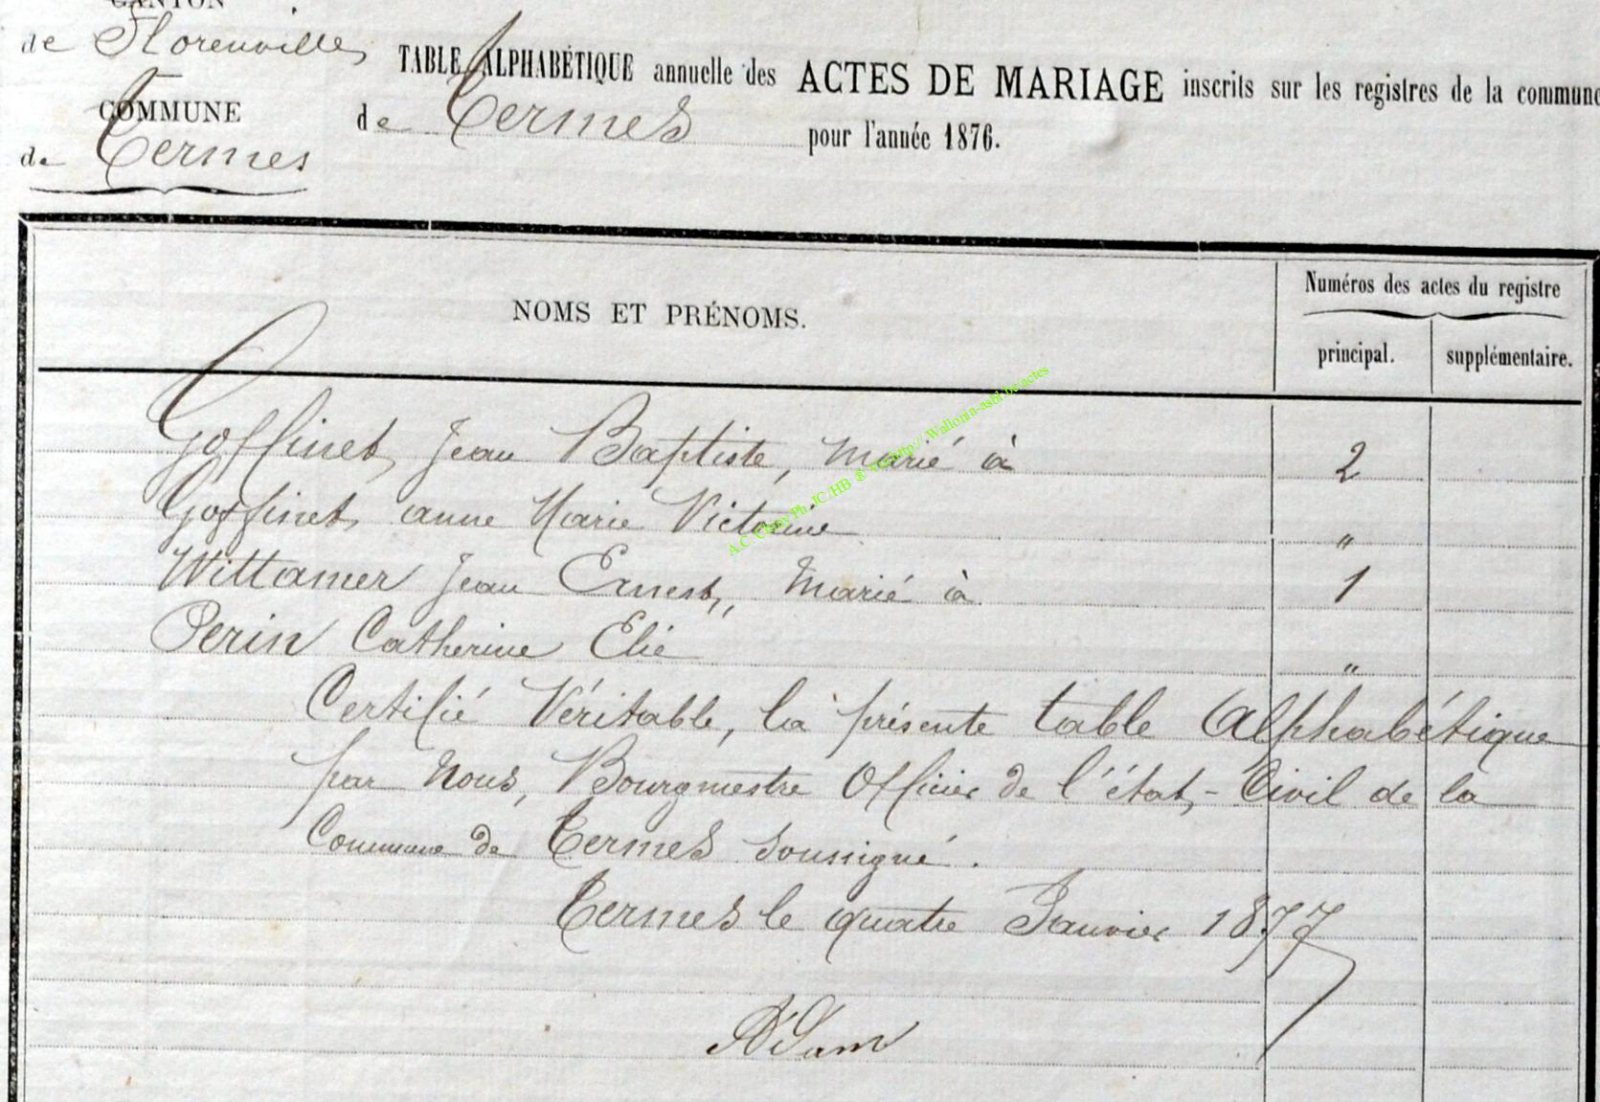 CANTON
de Florenville
TABLE ALPHABÉTIQUE annuelle des ACTES DE MARIAGE inscrits sur les registres de la commune
COMMUNE
de Termes
pour l'année 1876.
de Termes
NOMS ET PRÉNOMS.
Numéros des actes du registre
principal.
supplémentaire.
Goffinet Jean Baptiste, marié à 2
Goffinet anne Marie Victorine "
Wittamer Jean Ernest, marié à 1
Perin Catherine Elie "
Certifié Véritable, la présente table Alphabétique
par Nous, Bourgmestre Officier de l'état-Civil de la
Commune de Termes soussigné.
Termes le quatre Janvier 1877
Adam